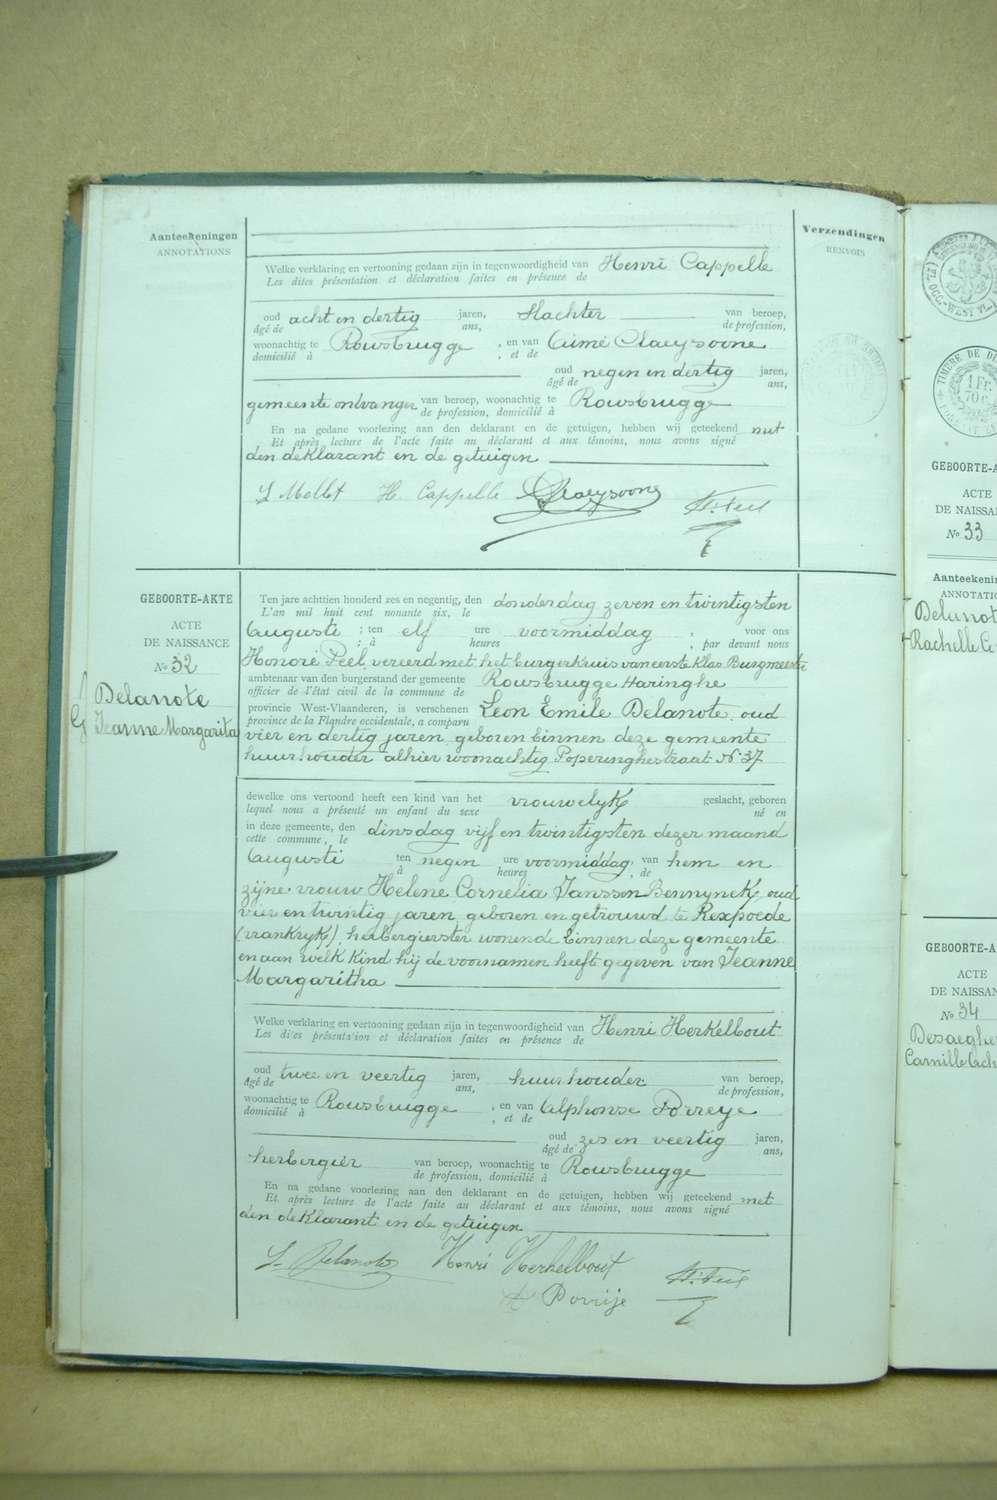 Aanteekeningen
ANNOTATIONS
Verzendingen
RENVOIS
Welke verklaring en vertooning gedaan zijn in tegenwoordigheid van Henri Cappelle
Les dites présentation et déclaration faites en présence de
oud acht en dertig jaren, slachter van beroep,
âgé de ans, de profession,
woonachtig te Rousbrugge , en van Aimé Claeysoone
domicilié à , et de
oud negen en dertig jaren,
âgé de ans,
gemeente ontvanger van beroep, woonachtig te Rousbrugge
de profession, domicilié à
En na gedane voorlezing aan den deklarant en de getuigen, hebben wij geteekend met
Et après lecture de l'acte faite au déclarant et aux témoins, nous avons signé
den deklarant en de getuigen
L Mollet H. Cappelle Claeysoone
GEBOORTE-AKTE
ACTE
DE NAISSANCE
No 32
Delanote
Jeanne Margarita
Ten jare achttien honderd zes en negentig, den donderdag zeven en twintigsten
L'an mil huit cent nonante six, le
Augusti ; ten elf ure voormiddag , voor ons
; à heures , par devant nous
Honoré Peel, vereerd met het burgerkruis van eerste klas Burgmeester
ambtenaar van den burgerstand der gemeente Rousbrugge Haringhe
officier de l'état civil de la commune de
provincie West-Vlaanderen, is verschenen Leon Emile Delanote, oud
province de la Flandre occidentale, a comparu
vier en dertig jaren, geboren binnen deze gemeente
huurhouder alhier woonachtig Poperinghestraat No 37
dewelke ons vertoond heeft een kind van het vrouwelyk geslacht, geboren
lequel nous a présenté un enfant du sexe né en
in deze gemeente, den dinsdag vijf en twintigsten dezer maand
cette commune, le
Augusti ten negen ure voormiddag, van hem en
à heures , de
zijne vrouw Helene Cornelia Janssen Bennynck, oud
vier en twintig jaren, geboren en getrouwd te Rexpoede
(vrankryk), herbergierster wonende binnen deze gemeente
en aan welk kind hij de voornamen heeft gegeven van Jeanne
Margaritha
Welke verklaring en vertooning gedaan zijn in tegenwoordigheid van Henri Herkelbout
Les dites présentation et déclaration faites en présence de
oud twee en veertig jaren, huurhouder van beroep,
âgé de ans, de profession,
woonachtig te Rousbrugge , en van Alphonse Porreye
domicilié à , et de
oud zes en veertig jaren,
âgé de ans,
herbergier van beroep, woonachtig te Rousbrugge
de profession, domicilié à
En na gedane voorlezing aan den deklarant en de getuigen, hebben wij geteekend met
Et après lecture de l'acte faite au déclarant et aux témoins, nous avons signé
den deklarant en de getuigen
L. Delanote Henri Herkelbout
Porrije
TIMBRE DE
1 FR.
GEBOORTE-A
ACTE
DE NAISSAN
No 33
Aanteekenin
ANNOTATIO
Delanote
Rachelle Co
GEBOORTE-A
ACTE
DE NAISSAN
No 34
Desaeghe
Camille Ach